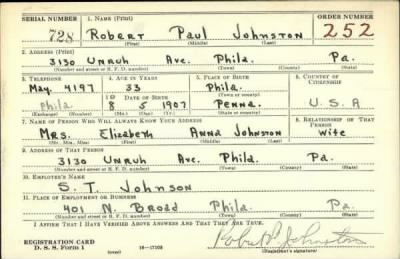 SERIAL NUMBER 1. NAME (Print) ORDER NUMBER
728 Robert Paul Johnston 252
(First) (Middle) (Last)
2. ADDRESS (Print)
3130 Unruh Ave. Phila. Pa.
(Number and street or R. F. D. number) (Town) (County) (State)
3. TELEPHONE 4. AGE IN YEARS 5. PLACE OF BIRTH 6. COUNTRY OF CITIZENSHIP
May. 4197 33 Phila.
DATE OF BIRTH (Town or county)
Phila 8 5 1907 Penna. U.S.A
(Exchange) (Number) (Mo.) (Day) (Yr.) (State or country)
7. NAME OF PERSON WHO WILL ALWAYS KNOW YOUR ADDRESS 8. RELATIONSHIP OF THAT PERSON
Mrs. Elizabeth Anna Johnston Wife
(Mr., Mrs., Miss) (First) (Middle) (Last)
9. ADDRESS OF THAT PERSON
3130 Unruh Ave. Phila. Pa.
(Number and street or R. F. D. number) (Town) (County) (State)
10. EMPLOYER'S NAME
S. T. Johnson
11. PLACE OF EMPLOYMENT OR BUSINESS
401 N. Broad Phila. Pa.
(Number and street or R. F. D. number) (Town) (County) (State)
I AFFIRM THAT I HAVE VERIFIED ABOVE ANSWERS AND THAT THEY ARE TRUE.
REGISTRATION CARD
D. S. S. Form 1 (over) 16—17105 Robert P. Johnston
(Registrant's signature)